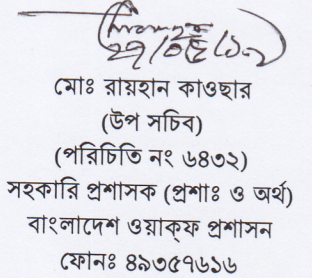 মোঃ রায়হান কাওছার
(উপ সচিব)
(পরিচিতি নং ৬৪৩২)
সহকারি প্রশাসক (প্রশাঃ ও অর্থ)
বাংলাদেশ ওয়াক্‌ফ প্রশাসন
ফোনঃ ৪৯৩৫৭৬১৬